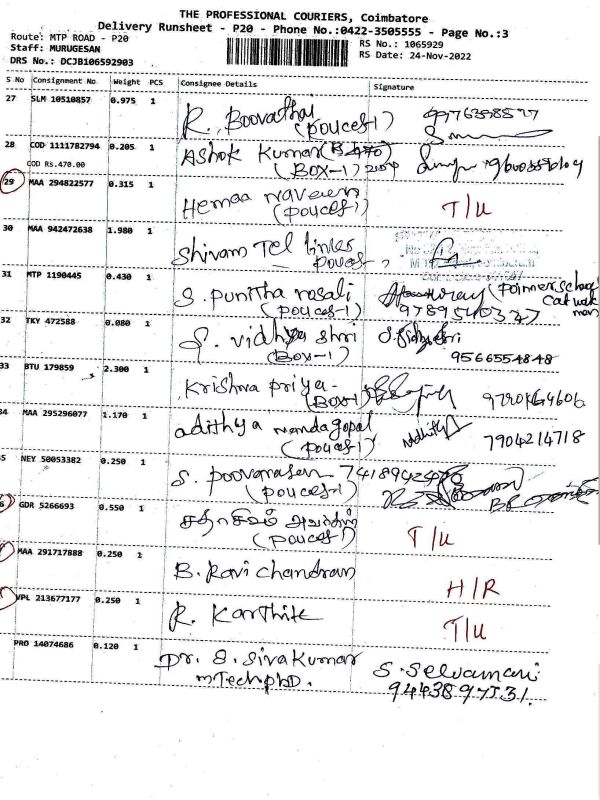 THE PROFESSIONAL COURIERS, Coimbatore
Delivery Runsheet - P20 - Phone No.:0422-3505555 - Page No.:3
Route: MTP ROAD - P20
Staff: MURUGESAN
DRS No.: DCJB106592903
RS No.: 1065929
RS Date: 24-Nov-2022
S No Consignment No. Weight PCS Consignee Details Signature
27 SLM 10510857 0.975 1
R. Boovathai
(pouces-1)
28 COD 1111782794 0.205 1
COD Rs.470.00
Ashok Kumar
(BOX-1)
29 MAA 294822577 0.315 1
Hemaa naveen
(pouces-1) T/U
30 MAA 942472638 1.980 1
Shivam Tel links
pouces
31 MTP 1190445 0.430 1
S. punitha rosali
(pouces-1)
32 TKY 472588 0.080 1
S. vidhya shri
(Box-1) 9566554848
33 BTU 179859 2.300 1
Krishna priya
(BOX-1)
34 MAA 295296077 1.170 1
adithya nandagopal
(pouces-1) 7904214718
5 NEY 50053382 0.250 1
S. poovarasan
(pouces-1)
6 GDR 5266693 0.550 1
(pouces-1) T/U
MAA 291717888 0.250 1
B. Ravi chandran H/R
VPL 213677177 0.250 1
R. Karthik T/U
PRO 14074686 0.120 1
Dr. S. Sivakumar S. Selvamani
mTech phD.